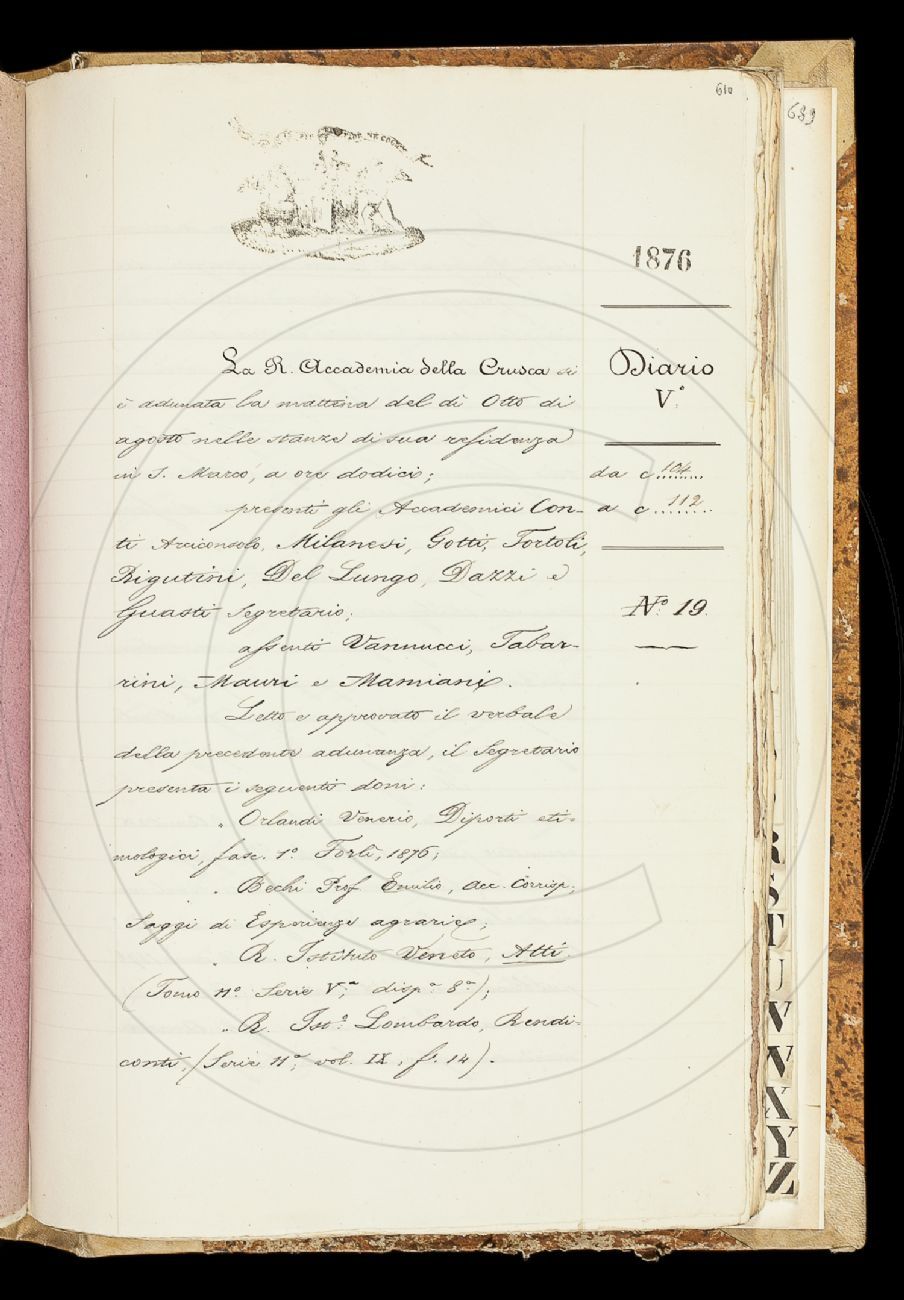 610
689
1876
La R. Accademia della Crusca si
è adunata la mattina del dì Otto di
agosto nelle stanze di sua residenza
in S. Marco, a ore dodici;
presenti gli Accademici Con-
ti Arciconsolo, Milanesi, Gotti, Tortoli,
Rigutini, Del Lungo, Dazzi e
Guasti Segretario;
assenti Vannucci, Tabar-
rini, Mauri e Mamiani.
Letto e approvato il verbale
della precedente adunanza, il Segretario
presenta i seguenti doni:
" Orlandi Venerio, Diporti eti-
mologici, fasc. 1º Forlì, 1876;
" Bechi Prof. Emilio, Acc. Corrisp.,
Saggi di Esperienze agrarie;
" R. Istituto Veneto, Atti
(Tomo IIº Serie Vª, dispª 8ª);
" R. Istº Lombardo, Rendi-
conti, (Serie IIª, vol. IX, f. 14).
Diario
Vº
da c 104
a c 112
Nº 19.
R
S
T
U
V
W
X
Y
Z